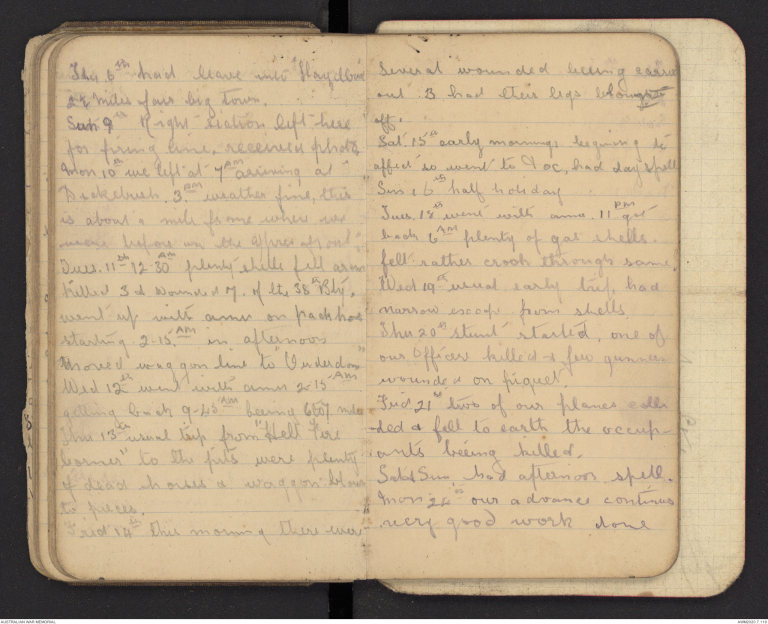 Thu 6th had leave into "Hazebrouck
22 miles fair big town.
Sun 9th Right section left here
for firing line. received photo
Mon 10th we left at 7 AM arriving at
Dickebush. 3. AM weather fine, this
is about a mile from where we
were before on the Ypres
Tues. 11th 12-30 AM plenty shells fell
killed 3 & wounded 7. of the 38th Bty.
went up with ammo on pack
starting 2-15. AM in afternoon
moved waggon line to
Wed 12th went with ammo 2-15 AM
getting back 9-45 AM being 6 to 7 miles
Thu 13th usual trip from "Hell Fire
Corner" to the pits were plenty
of dead horses & waggon blown
to pieces.
Frid 14th this morning there were
several wounded being carried
out 3 had their legs blown
off.
Sat 15th early mornings begining to
affect so went to Doc, had day spell
Sun 16th half holiday
Tues. 18th went with ammo. 11 PM got
back 6 AM plenty of gas shells.
fell rather crook through same.
Wed 19th usual early trip, had
narrow escape from shells.
Thu 20th stunt started, one of
our officers killed & few gunners
wounded on piquet.
Frid 21st two of our planes colli-
-ded & fell to earth the occup-
-ants being killed.
Sat & Sun had afternoon spell.
Mon 24th our advance continues
very good work done
AUSTRALIAN WAR MEMORIAL